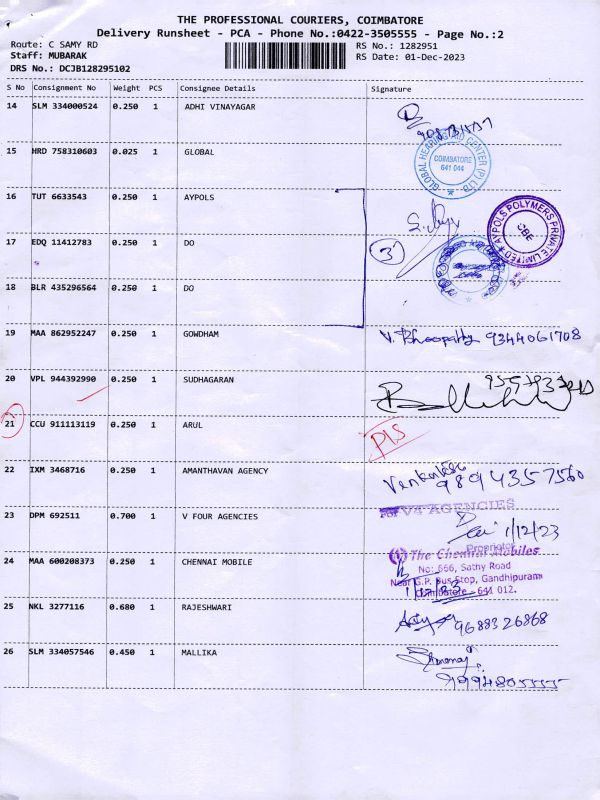 THE PROFESSIONAL COURIERS, COIMBATORE
Delivery Runsheet - PCA - Phone No.:0422-3505555 - Page No.:2
Route: C SAMY RD
RS No.: 1282951
Staff: MUBARAK
RS Date: 01-Dec-2023
DRS No.: DCJB128295102
S No Consignment No Weight PCS Consignee Details Signature
14 SLM 334000524 0.250 1 ADHI VINAYAGAR
15 HRD 758310603 0.025 1 GLOBAL
GLOBAL HEARING AID CENTER (P) LTD
COIMBATORE
641 044
16 TUT 6633543 0.250 1 AYPOLS
AYPOLS POLYMERS PRIVATE LIMITED
CBE
17 EDQ 11412783 0.250 1 DO
3
18 BLR 435296564 0.250 1 DO
19 MAA 862952247 0.250 1 GOWDHAM
V. Bhoopathy 9344061708
20 VPL 944392990 0.250 1 SUDHAGARAN
21 CCU 911113119 0.250 1 ARUL
22 IXM 3468716 0.250 1 AMANTHAVAN AGENCY
9894357560
23 DPM 692511 0.700 1 V FOUR AGENCIES
For V4 AGENCIES
1/12/23
Proprietor
24 MAA 600208373 0.250 1 CHENNAI MOBILE
The Chennai Mobiles
No: 666, Sathy Road
Near G.P. Bus Stop, Gandhipuram
Coimbatore - 641 012.
25 NKL 3277116 0.680 1 RAJESHWARI
9688326868
26 SLM 334057546 0.450 1 MALLIKA